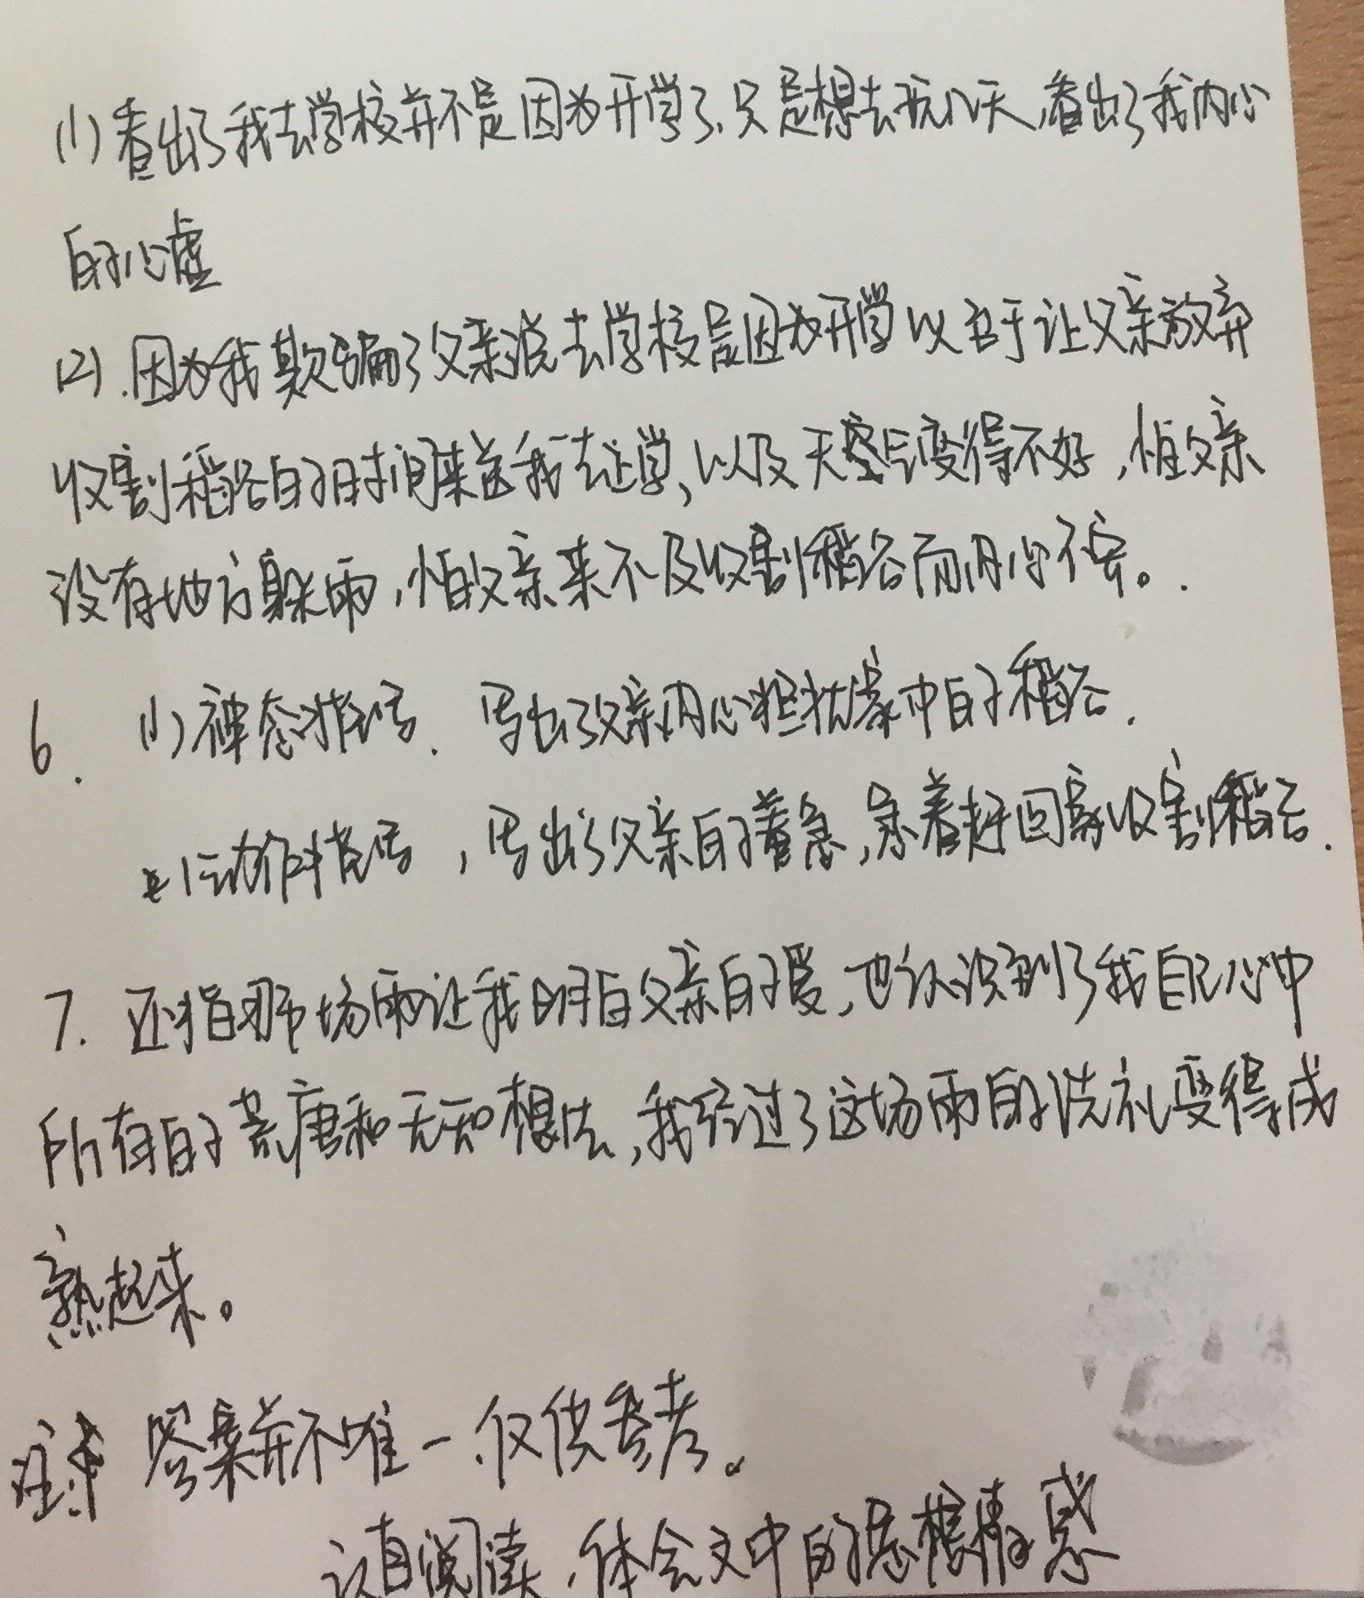 (1) 看出了我去学校并不是因为开学了,只是想去玩几天,看出了我内心
的心虚
(2).因为我欺骗了父亲说去学校是因为开学以至于让父亲放弃
收割稻谷的时间来送我去上学,以及天空气变得不好,怕父亲
没有地方躲雨,怕父亲来不及收割稻谷而内心不安。
6. (1) 神态描写.写出了父亲内心担忧家中的稻谷.
动作描写,写出了父亲的着急,急着赶回家收割稻谷.
7. 还指那场雨让我明白父亲的爱,也认识到了我自己心中
所有的荒唐和无知想法,我经过了这场雨的洗礼变得成
熟起来。
注: 答案并不唯一.仅供参考。
认真阅读,体会文中的思想情感